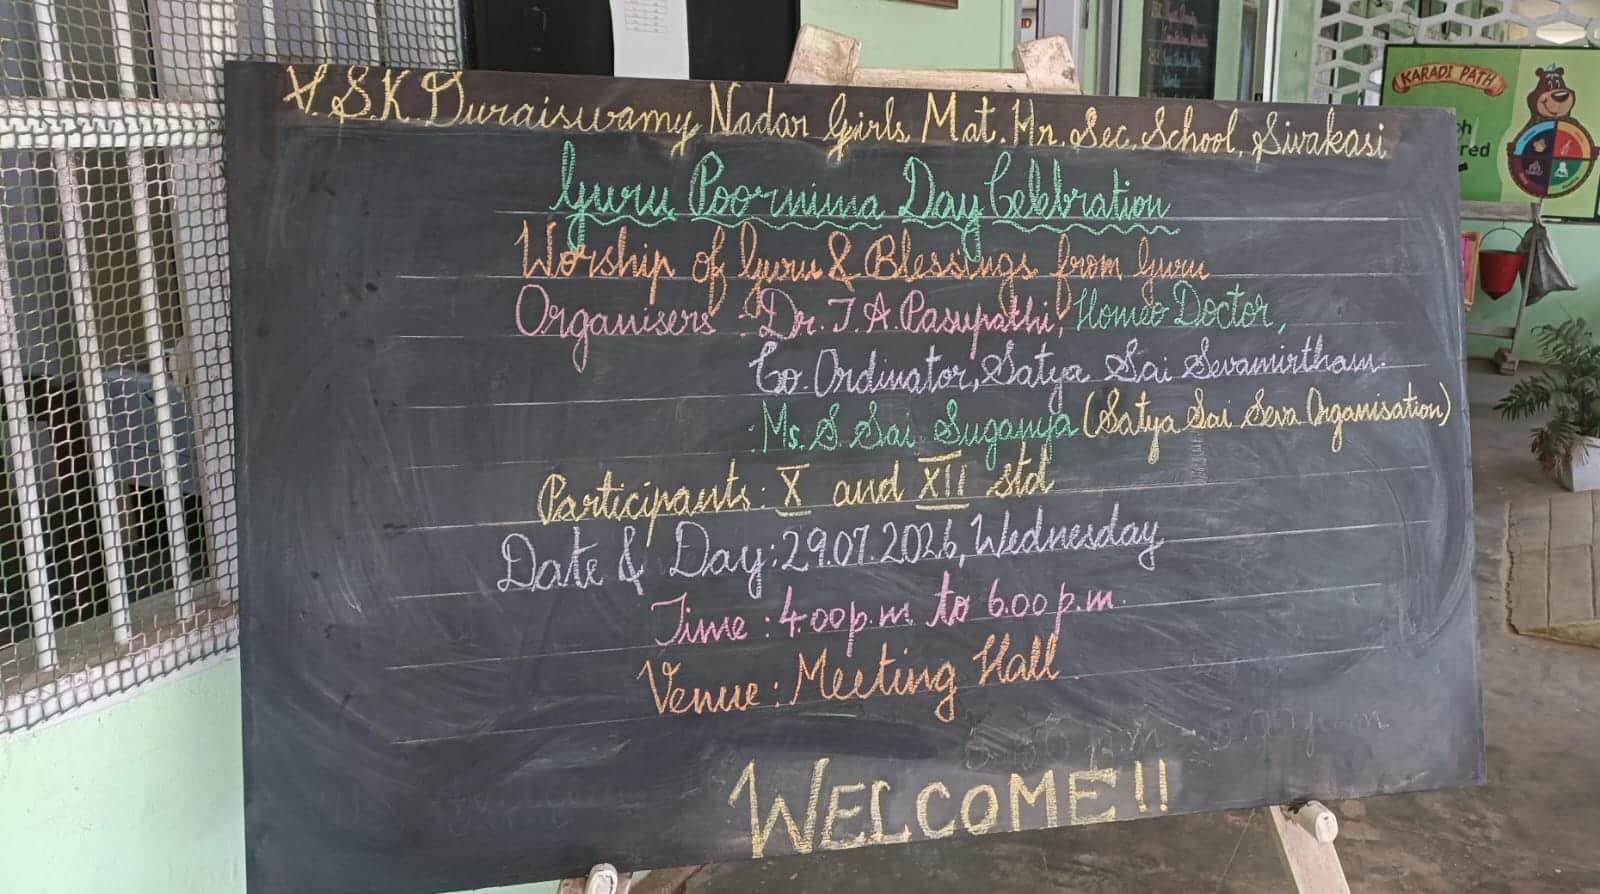 V.S.K. Duraiswamy Nadar Girls Mat. Hr. Sec. School, Sivakasi
Guru Poornima Day Celebration
Worship of Guru & Blessings from Guru
Organisers : Dr. J. A. Pasupathi, Homeo Doctor,
Co-Ordinator, Satya Sai Sevamirtham.
: Ms. S. Sai Suganya (Satya Sai Seva Organisation)
Participants : X and XII std
Date & Day : 29.07.2026, Wednesday
Time : 4.00 p.m. to 6.00 p.m.
Venue : Meeting Hall
WELCOME!!
KARADI PATH